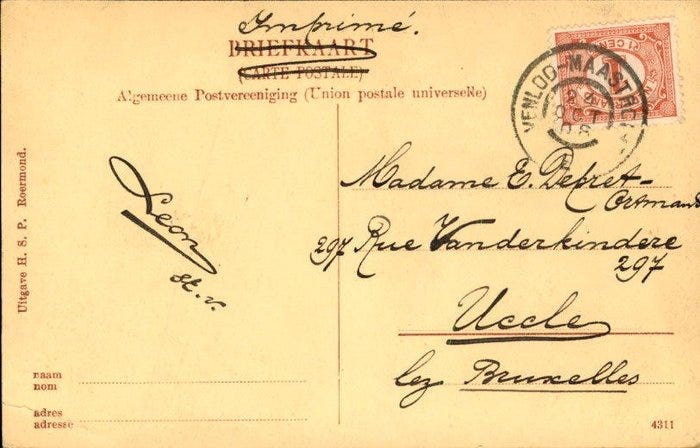 Imprimé.
BRIEFKAART
(CARTE POSTALE)
Algemeene Postvereeniging (Union postale universelle)
VENLOO-MAASTR
OCT
08
1 CENT
Madame E. Depret-
Ortmans
297 Rue Vanderkindere
297
Uccle
lez Bruxelles
Leon
st. v.
Uitgave H. S. P. Roermond.
naam
nom
adres
adresse
4311